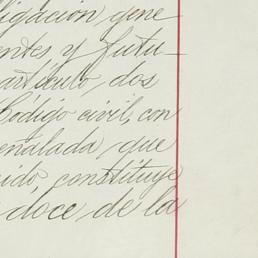 ligación gene
entes y futu-
artículo, dos
Código civil, con
señalada, que
ido, constituye
doce de la